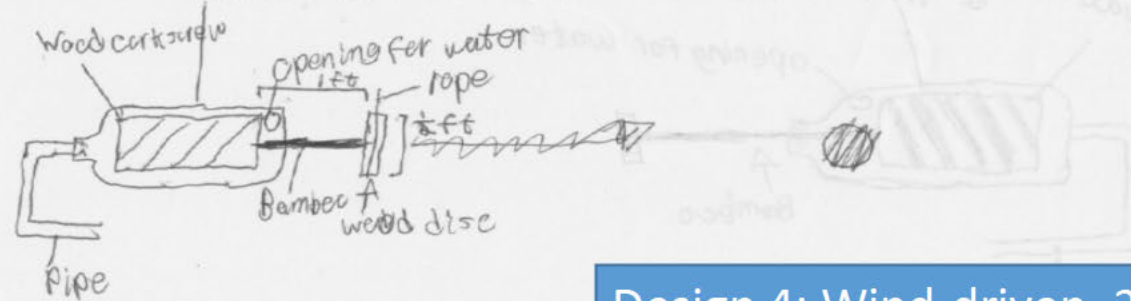 Wood corkscrew
opening for water
1ft
rope
½ft
Bamboo
wood disc
Pipe
opening for water
Bamboo
Design 4: Wind-driven